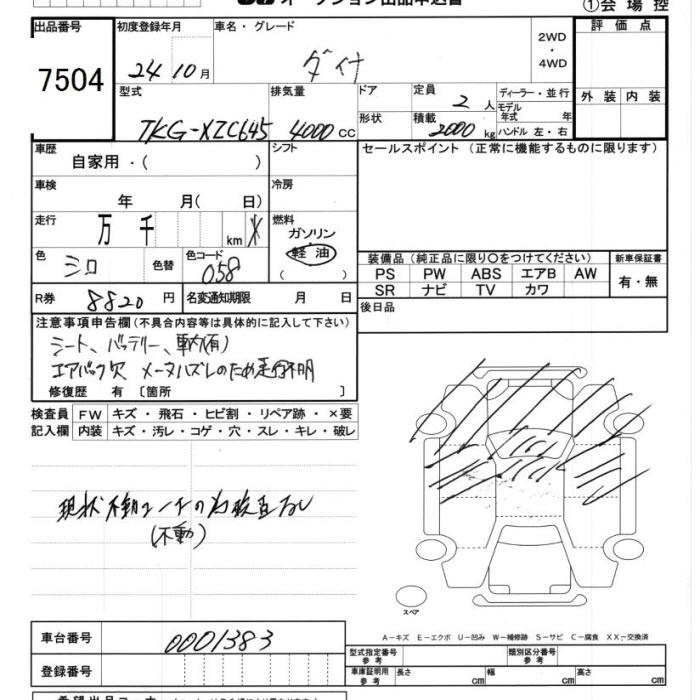 オークション出品申込書
①会場控
出品番号 7504
初度登録年月 24年10月
車名・グレード ダイナ
2WD・4WD
評価点
外装 内装
型式 TKG-XZC645
排気量 4000cc
ドア
形状
定員 2人
積載 2000kg
ディーラー・並行
モデル年式 年
ハンドル 左・右
車歴 自家用・( )
シフト
セールスポイント（正常に機能するものに限ります）
車検 年 月( 日)
冷房
走行 万 千 km
燃料 ガソリン 軽油 ( )
色 シロ
色替
色コード 058
装備品（純正品に限り○をつけてください）
新車保証書
PS PW ABS エアB AW
SR ナビ TV カワ
有・無
R券 8820円
名変通知期限 月 日
後日品
注意事項申告欄（不具合内容等は具体的に記入して下さい）
シート、バッテリー、車内(有)
エアバック欠 メーターハズレのため走行不明
修復歴 有 〔箇所 〕
検査員記入欄
FW キズ・飛石・ヒビ割・リペア跡・×要
内装 キズ・汚レ・コゲ・穴・スレ・キレ・破レ
現状不動コーナーの為検査なし
(不動)
スペア
A－キズ E－エクボ U－凹み W－補修跡 S－サビ C－腐食 XX－交換済
車台番号 0001383
登録番号
型式指定番号 参考
類別区分番号 参考
車庫証明用 参考 長さ cm 幅 cm 高さ cm
希望出品コーナー